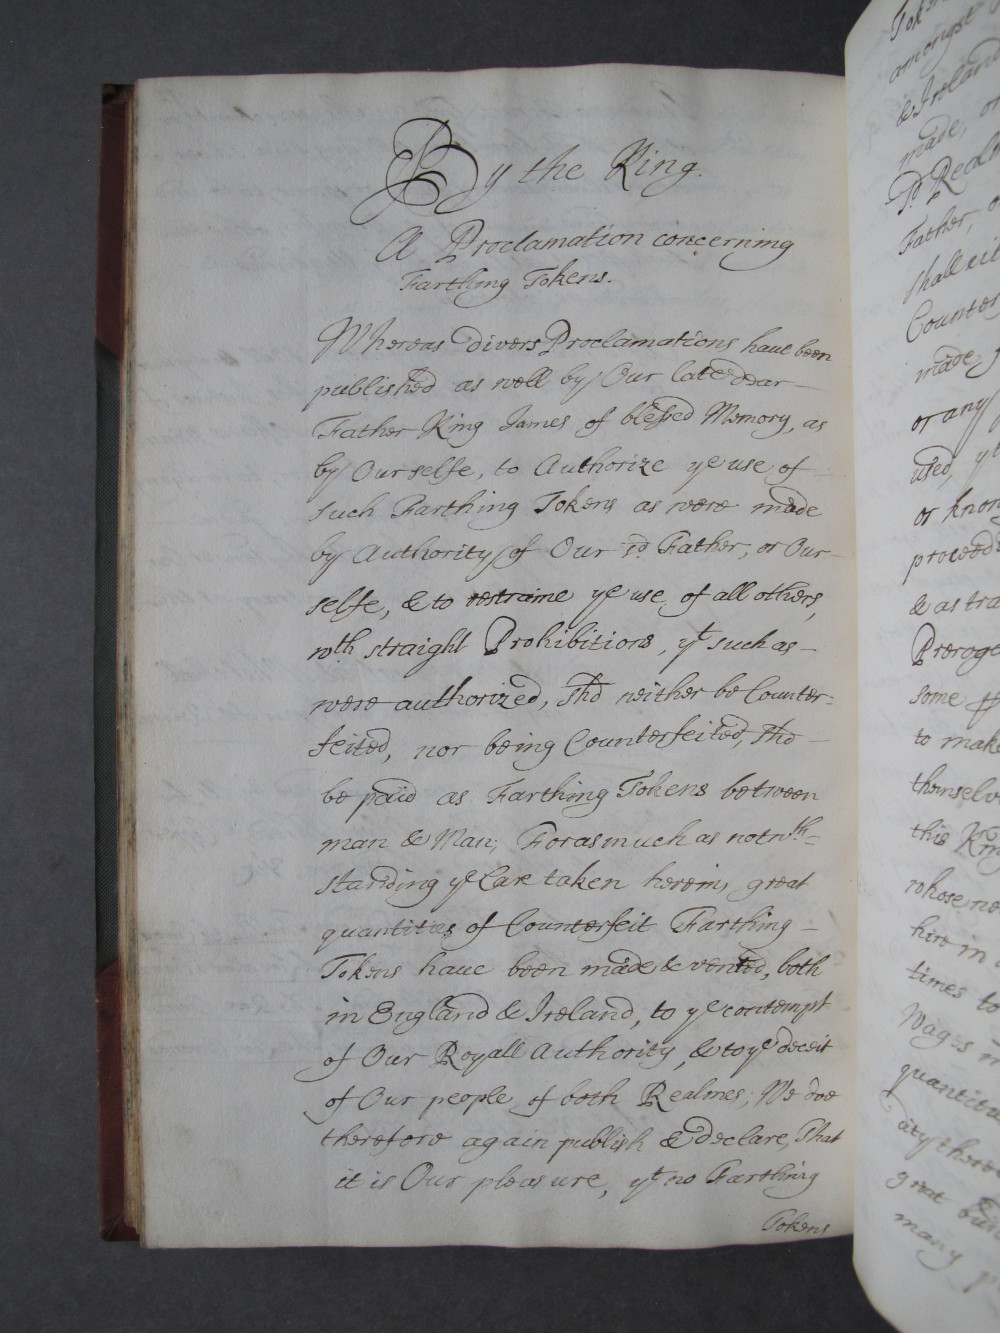 By the King.
A Proclamation concerning
Farthing Tokens.
Whereas divers Proclamations have been
published as well by Our late dear
Father King James of blessed Memory, as
by Our selfe, to Authorize ye use of
such Farthing Tokens as were made
by Authority of Our sd. Father, or Our
selfe, & to restraine ye use of all others,
wth straight Prohibitions, yt such as
were authorized, shd neither be Counter-
feited, nor being Counterfeited, shd
be paid as Farthing Tokens between
man & Man; Forasmuch as notwth-
standing ye Care taken herein, great
quantities of Counterfeit Farthing
Tokens have been made & vented, both
in England & Ireland, to ye contempt
of Our Royall Authority, & to ye deceit
of Our people of both Realmes; We doe
therefore again publish & declare, That
it is Our pleasure, yt no Farthing
Tokens
amongst
& Ireland
made, or
sd. Realm
Father, o
shall eit
Counter
made;
or any
used, yt
or know
proceed
& as tra
Preroga
some
to make
themselv
this Kin
whose ne
hire in
times to
Wages
quantiti
city there
great
many p